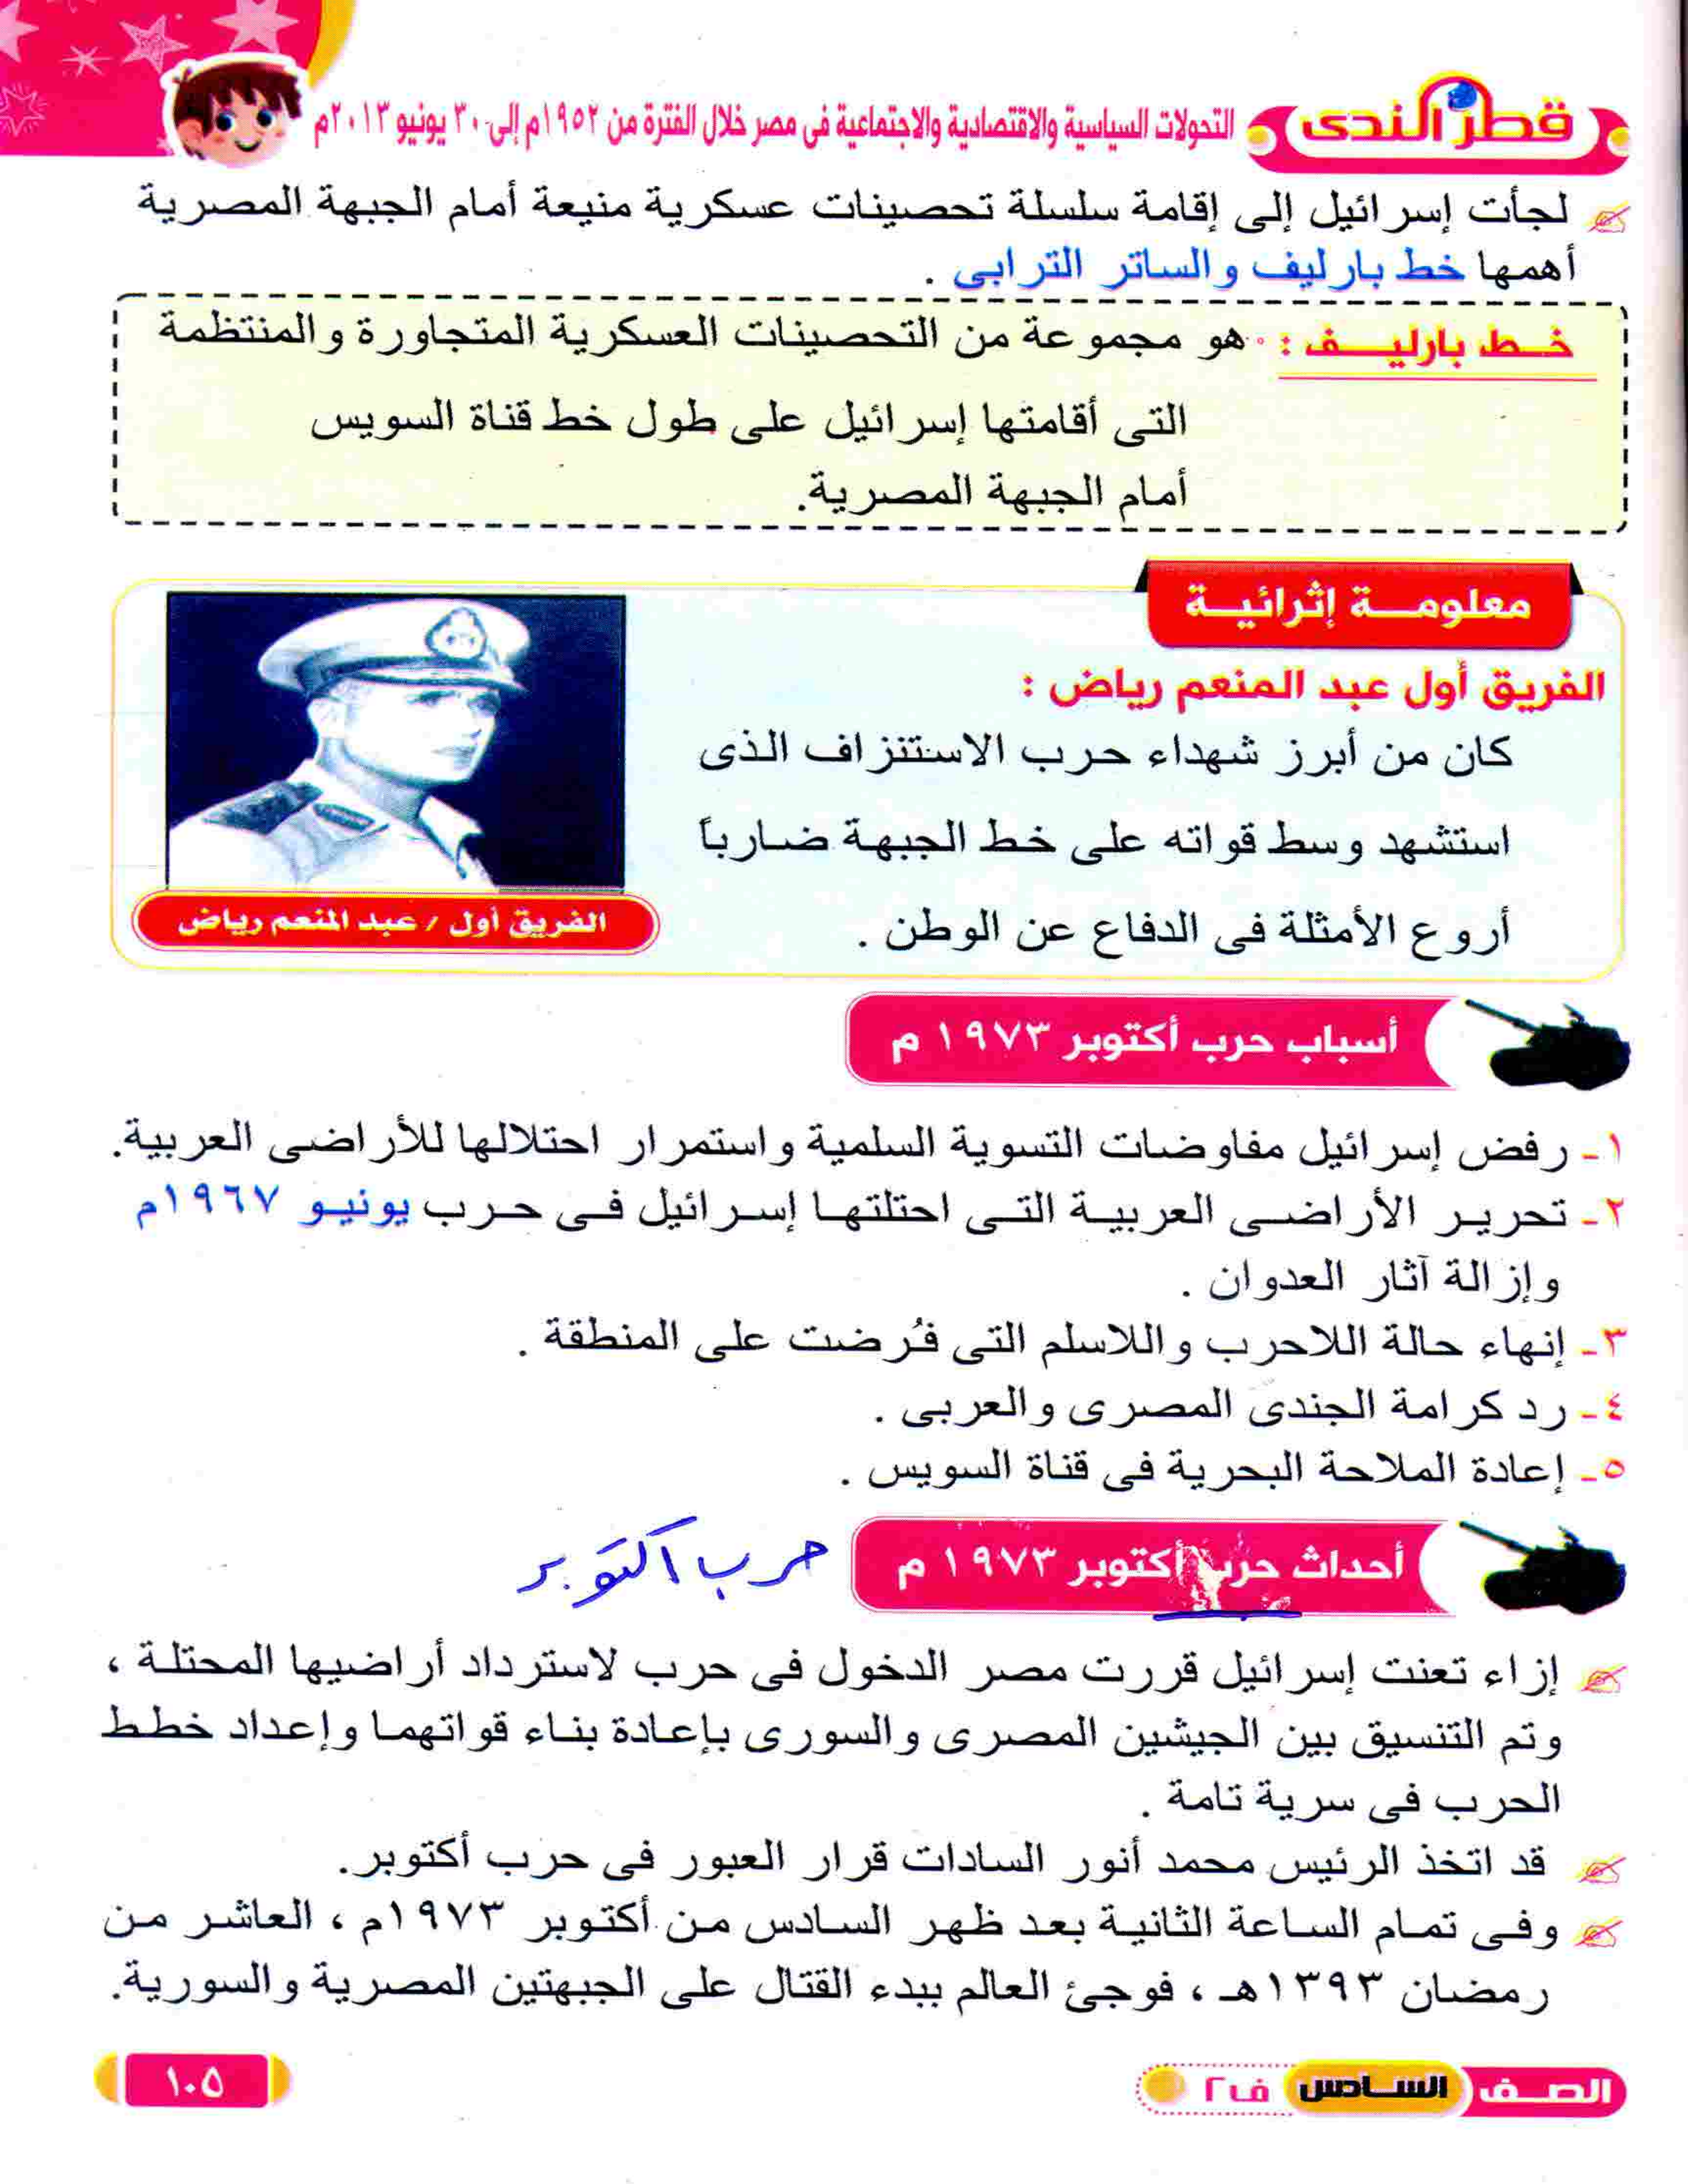 قطر الندى
التحولات السياسية والاقتصادية والاجتماعية فى مصر خلال الفترة من ١٩٥٢م إلى ٣٠ يونيو ٢٠١٣م
لجأت إسرائيل إلى إقامة سلسلة تحصينات عسكرية منيعة أمام الجبهة المصرية
أهمها خط بارليف والساتر الترابى .
خـط بارليـــف : هو مجموعة من التحصينات العسكرية المتجاورة والمنتظمة
التى أقامتها إسرائيل على طول خط قناة السويس
أمام الجبهة المصرية.
معلومـــة إثرائيـــة
الفريق أول عبد المنعم رياض :
كان من أبرز شهداء حرب الاستنزاف الذى
استشهد وسط قواته على خط الجبهة ضارباً
أروع الأمثلة فى الدفاع عن الوطن .
الفريق أول / عبد المنعم رياض
أسباب حرب أكتوبر ١٩٧٣ م
١- رفض إسرائيل مفاوضات التسوية السلمية واستمرار احتلالها للأراضى العربية.
٢- تحرير الأراضى العربية التى احتلتها إسرائيل فى حرب يونيو ١٩٦٧م
وإزالة آثار العدوان .
٣- إنهاء حالة اللاحرب واللاسلم التى فُرضت على المنطقة .
٤- رد كرامة الجندى المصرى والعربى .
٥- إعادة الملاحة البحرية فى قناة السويس .
أحداث حرب أكتوبر ١٩٧٣ م
حرب اكتوبر
إزاء تعنت إسرائيل قررت مصر الدخول فى حرب لاسترداد أراضيها المحتلة ،
وتم التنسيق بين الجيشين المصرى والسورى بإعادة بناء قواتهما وإعداد خطط
الحرب فى سرية تامة .
قد اتخذ الرئيس محمد أنور السادات قرار العبور فى حرب أكتوبر.
وفى تمام الساعة الثانية بعد ظهر السادس من أكتوبر ١٩٧٣م ، العاشر من
رمضان ١٣٩٣هـ ، فوجئ العالم ببدء القتال على الجبهتين المصرية والسورية.
الصـف السـادس ف٢
١٠٥